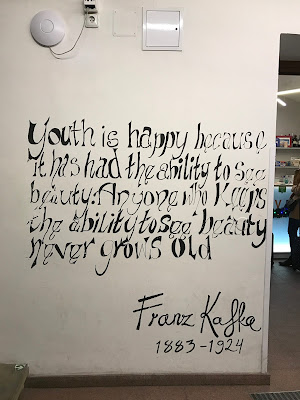 Youth is happy because
it has had the ability to see
beauty. Anyone who keeps
the ability to see beauty
never grows old
Franz Kafka
1883-1924